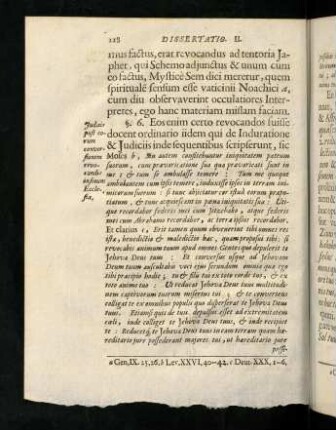 118 DISSERTATIO. II.
mus factus, erat revocandus ad tentoria Ja-
phet, qui Schemo adjunctus & unum cum
eo factus, Mysticè Sem dici meretur, quem
spiritualē sensum esse vaticinii Noachici a,
cum diu observaverint occulatiores Inter-
pretes, ego hanc materiam missam faciam.
§. 6. Eos enim certo revocandos fuisse
docent ordinario iidem qui de Induratione
& Judiciis inde sequentibus scripserunt, sic
Moses b, An autem confitebuntur iniquitatem patrum
suorum, cum prævaricatione sua prævaricati sunt in
me; & tum se ambulasse temere: Tum me quoque
ambulantem cum ipsis temere, induxisse ipsos in terram ini-
micorum suorum: si tunc abjicietur cor ipsorum præpu-
tiatum, & tunc acquiescant in pœna iniquitatis suæ: Ut-
que recordabor fœderis mei cum Jitzchako, atque fœderis
mei cum Abrahamo recordabor, ac terræ istius recordabor.
Et clarius c, Erit tamen quum obvenerint tibi omnes res
istæ, benedictio & maledictio hæc, quam proposui tibi; si
revocabis animum tuum apud omnes Gentes quò depulerit te
Jehova Deus tuus: Et conversus usque ad Jehovam
Deum tuum auscultabis voci ejus secundum omnia quæ ego
tibi præcipio hodie; tu & filii tui ex toto corde tuo, & ex
tota anima tua: Ut reducat Jehova Deus tuus multitudi-
nem captivorum tuorum misertus tui; & te convertens
colligat te ex omnibus populis quo disperserat te Jehova Deus
tuus. Etiamsi quis de tuis depulsus esset ad extremitatem
cæli, inde colliget te Jehova Deus tuus, & inde recipiet
te: Reducetq; te Jehova Deus tuus in eam terram quam hæ-
reditario jure possederant majores tui, ut hæreditario jure
posse-
Judæos
post re-
rum
conver-
sionem
revo-
candos
in sinum
Eccle-
siæ,
a Gen. IX. 25. 26. b Lev. XXVI, 40—42. c Deut. XXX, 1-6.